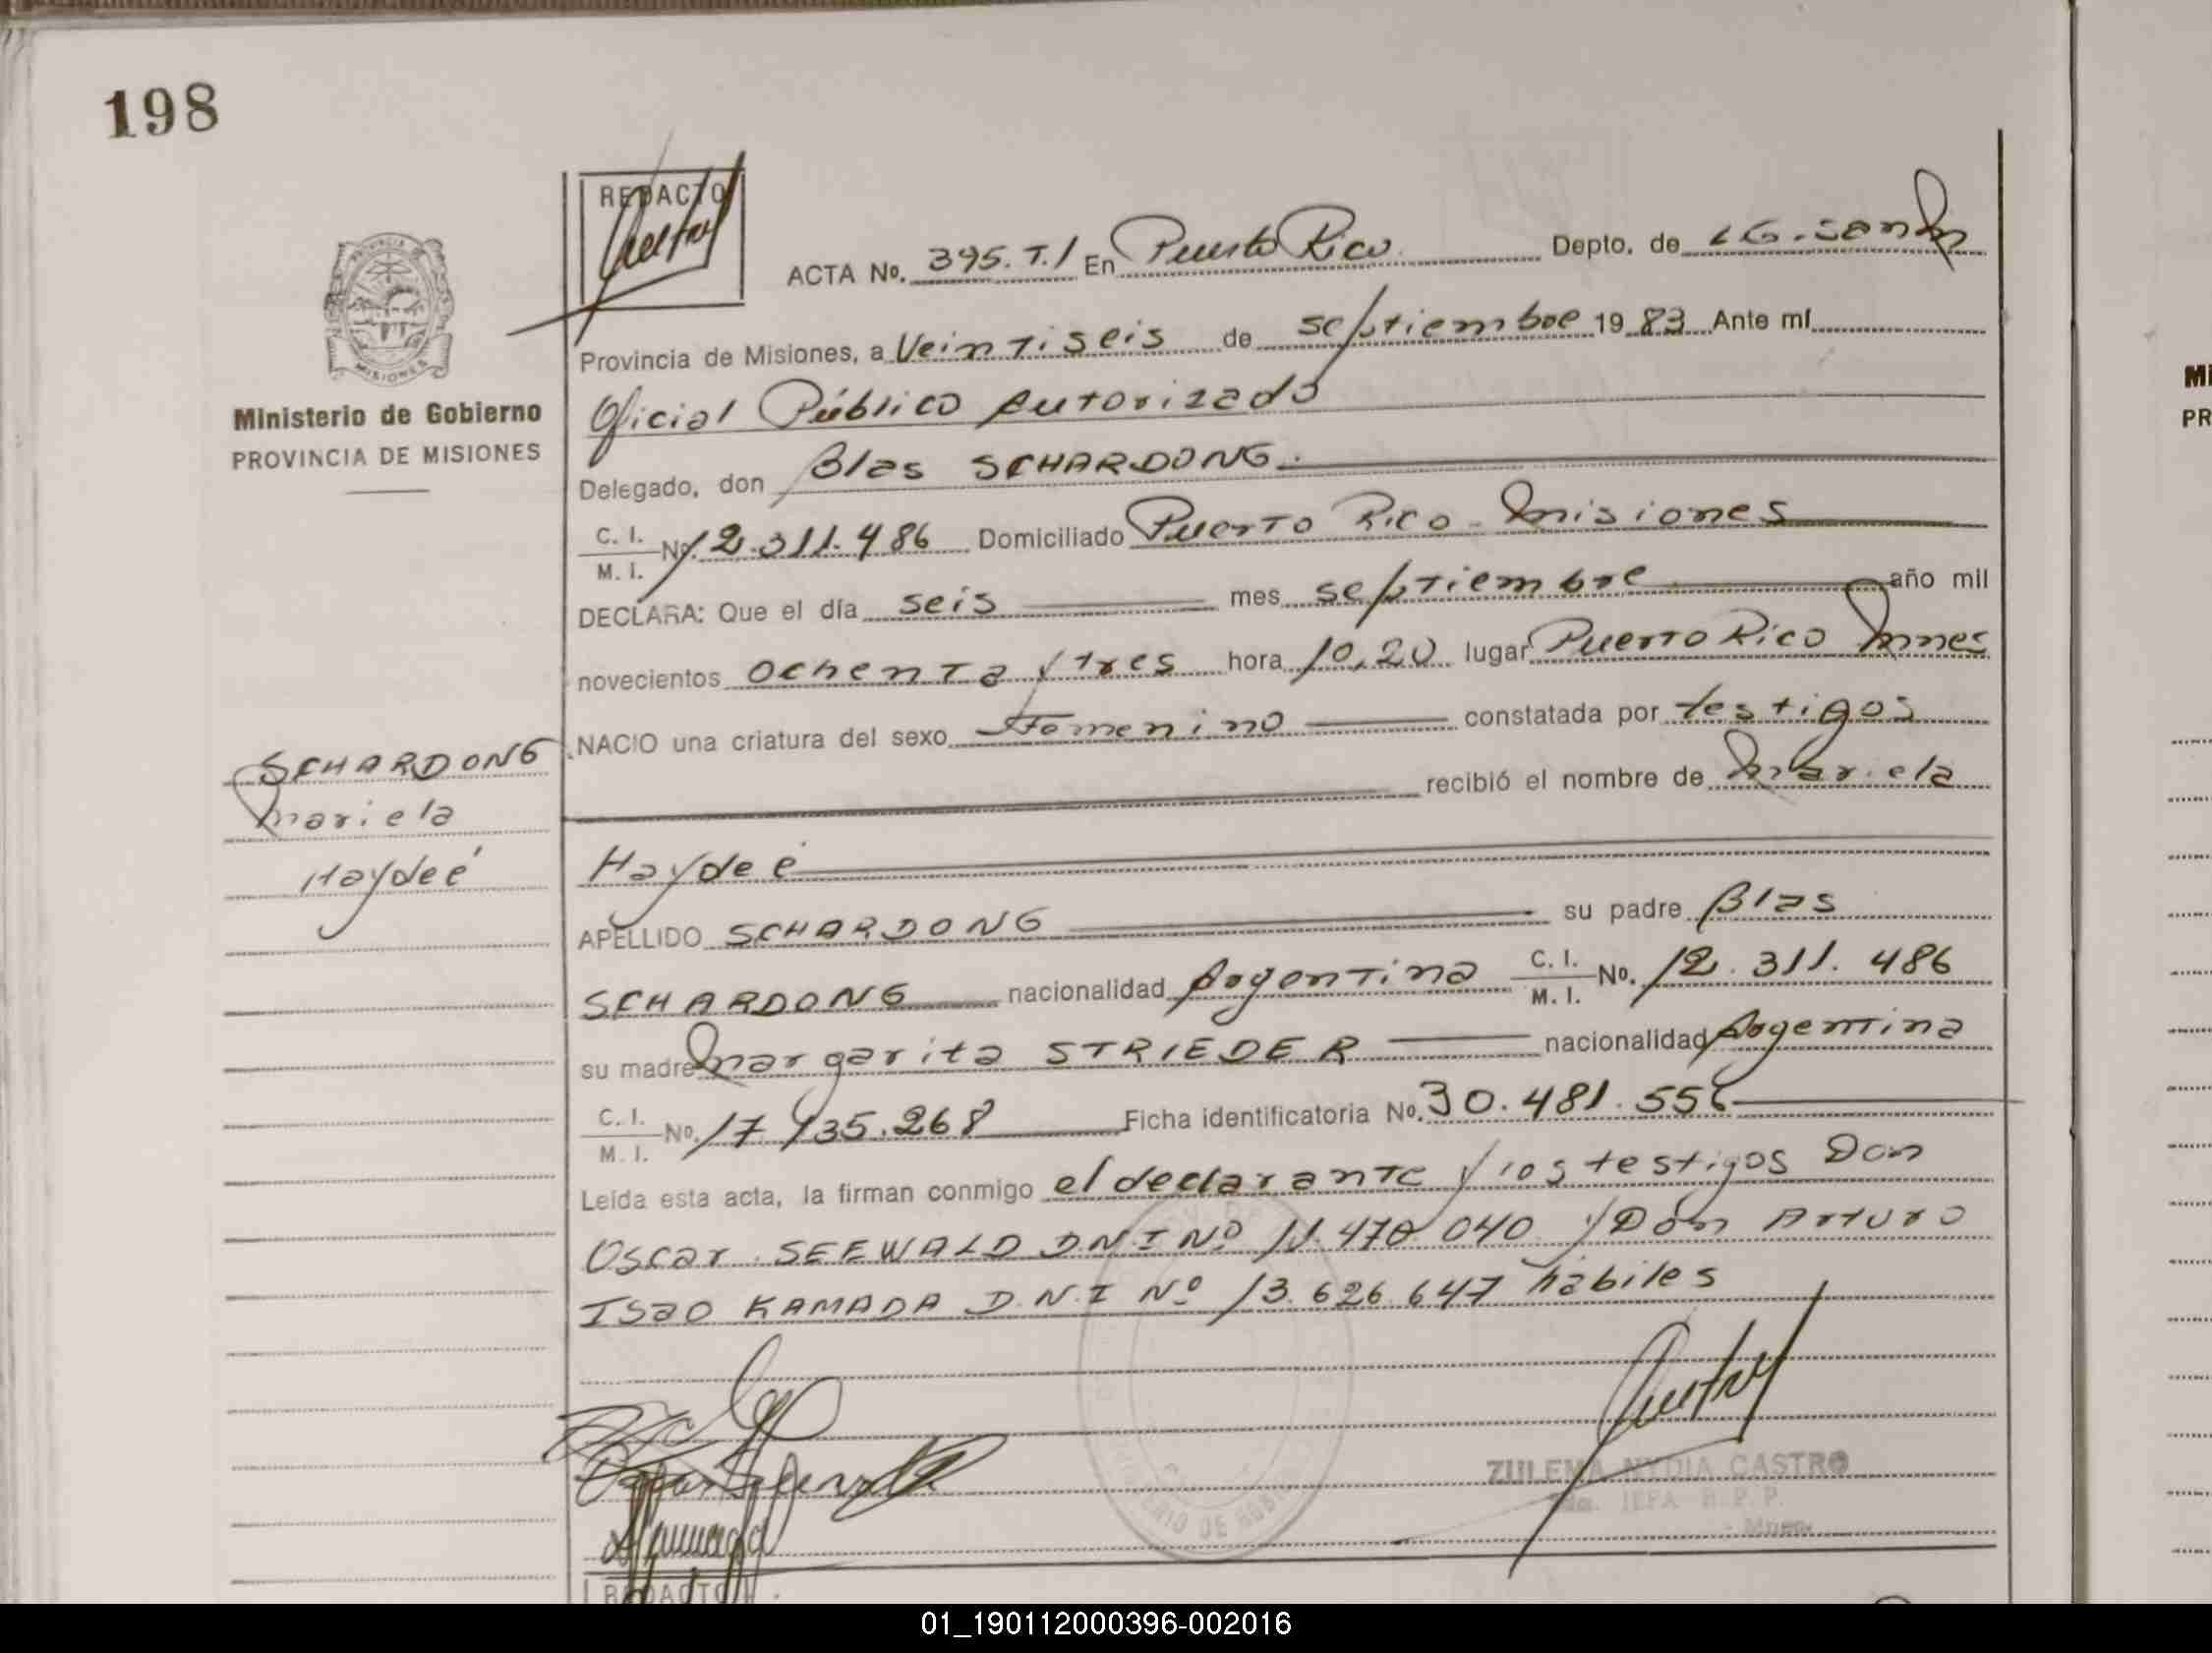 198
REDACTO
ACTA No. 395. T.1 En Puerto Rico. Depto. de LG. San Mn
Provincia de Misiones, a Veintiseis de septiembre 19 83 Ante mí
Oficial Público Autorizado
Ministerio de Gobierno
PROVINCIA DE MISIONES
Delegado, don Blas SCHARDONG.
C. I. M. I. No. 12.311.486 Domiciliado Puerto Rico - Misiones
DECLARA: Que el día seis mes septiembre año mil
novecientos ochenta y tres hora 10,20 lugar Puerto Rico Mnes
NACIO una criatura del sexo Femenino constatada por testigos
SCHARDONG
Mariela
Haydeé
recibió el nombre de Mariela
Haydeé
APELLIDO SCHARDONG su padre Blas
SCHARDONG nacionalidad Argentina C. I. M. I. No. 12.311.486
su madre Margarita STRIEDER nacionalidad Argentina
C. I. M. I. No. 17.135.268 Ficha identificatoria No. 30.481.556
Leída esta acta, la firman conmigo el declarante y los testigos Don
Oscar SEEWALD D.N.I Nº 11.470.040 y Don Arturo
Isao KAMADA D.N.I Nº 13.626.647 hábiles
ZULEMA NYDIA CASTRO
JEFA R. P. P.
Mnes.
MISIONES
REDACTO
Mi
PR
01_190112000396-002016